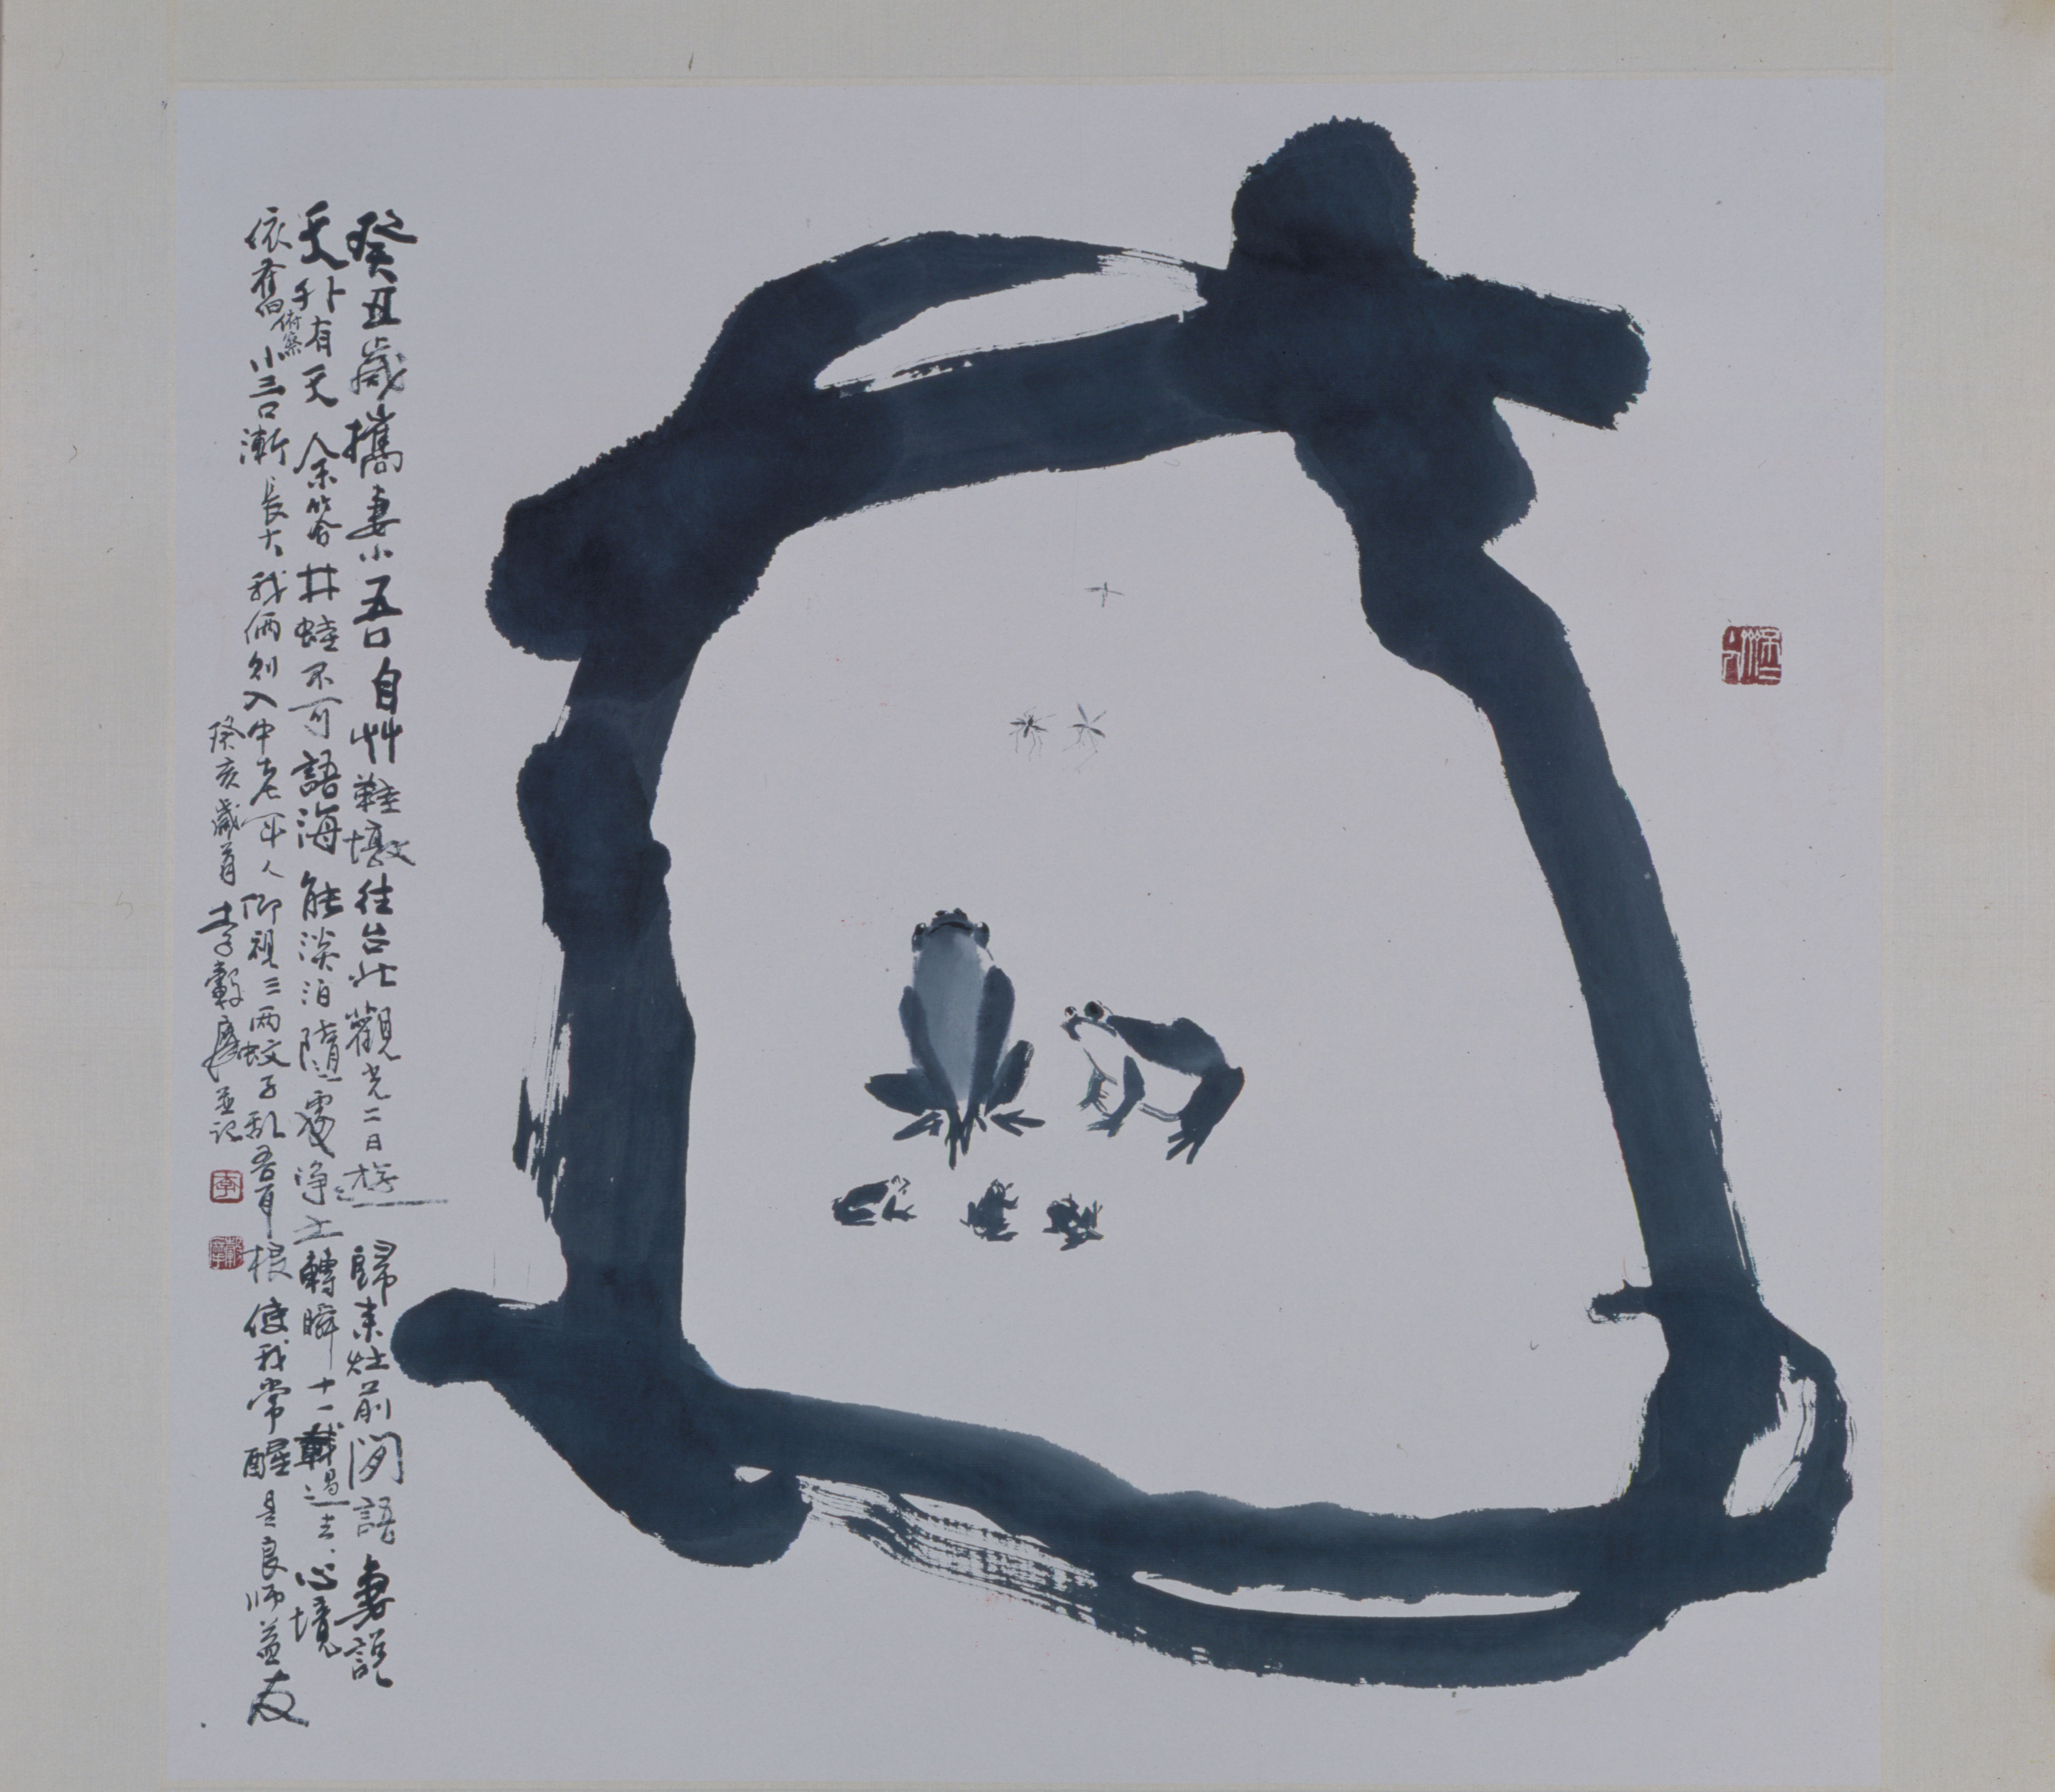 癸丑歲攜妻小五口自艸鞋墩往台北觀光二日遊歸來灶前閒語妻說
天外有天余答井蛙不可語海能淡泊隨處淨土轉瞬十一載過去心境
依舊俯察小三口漸長大我倆則入中老年人仰視三兩蚊子乱吾耳根使我常醒是良師益友
癸亥歲首李轂摩並記
李